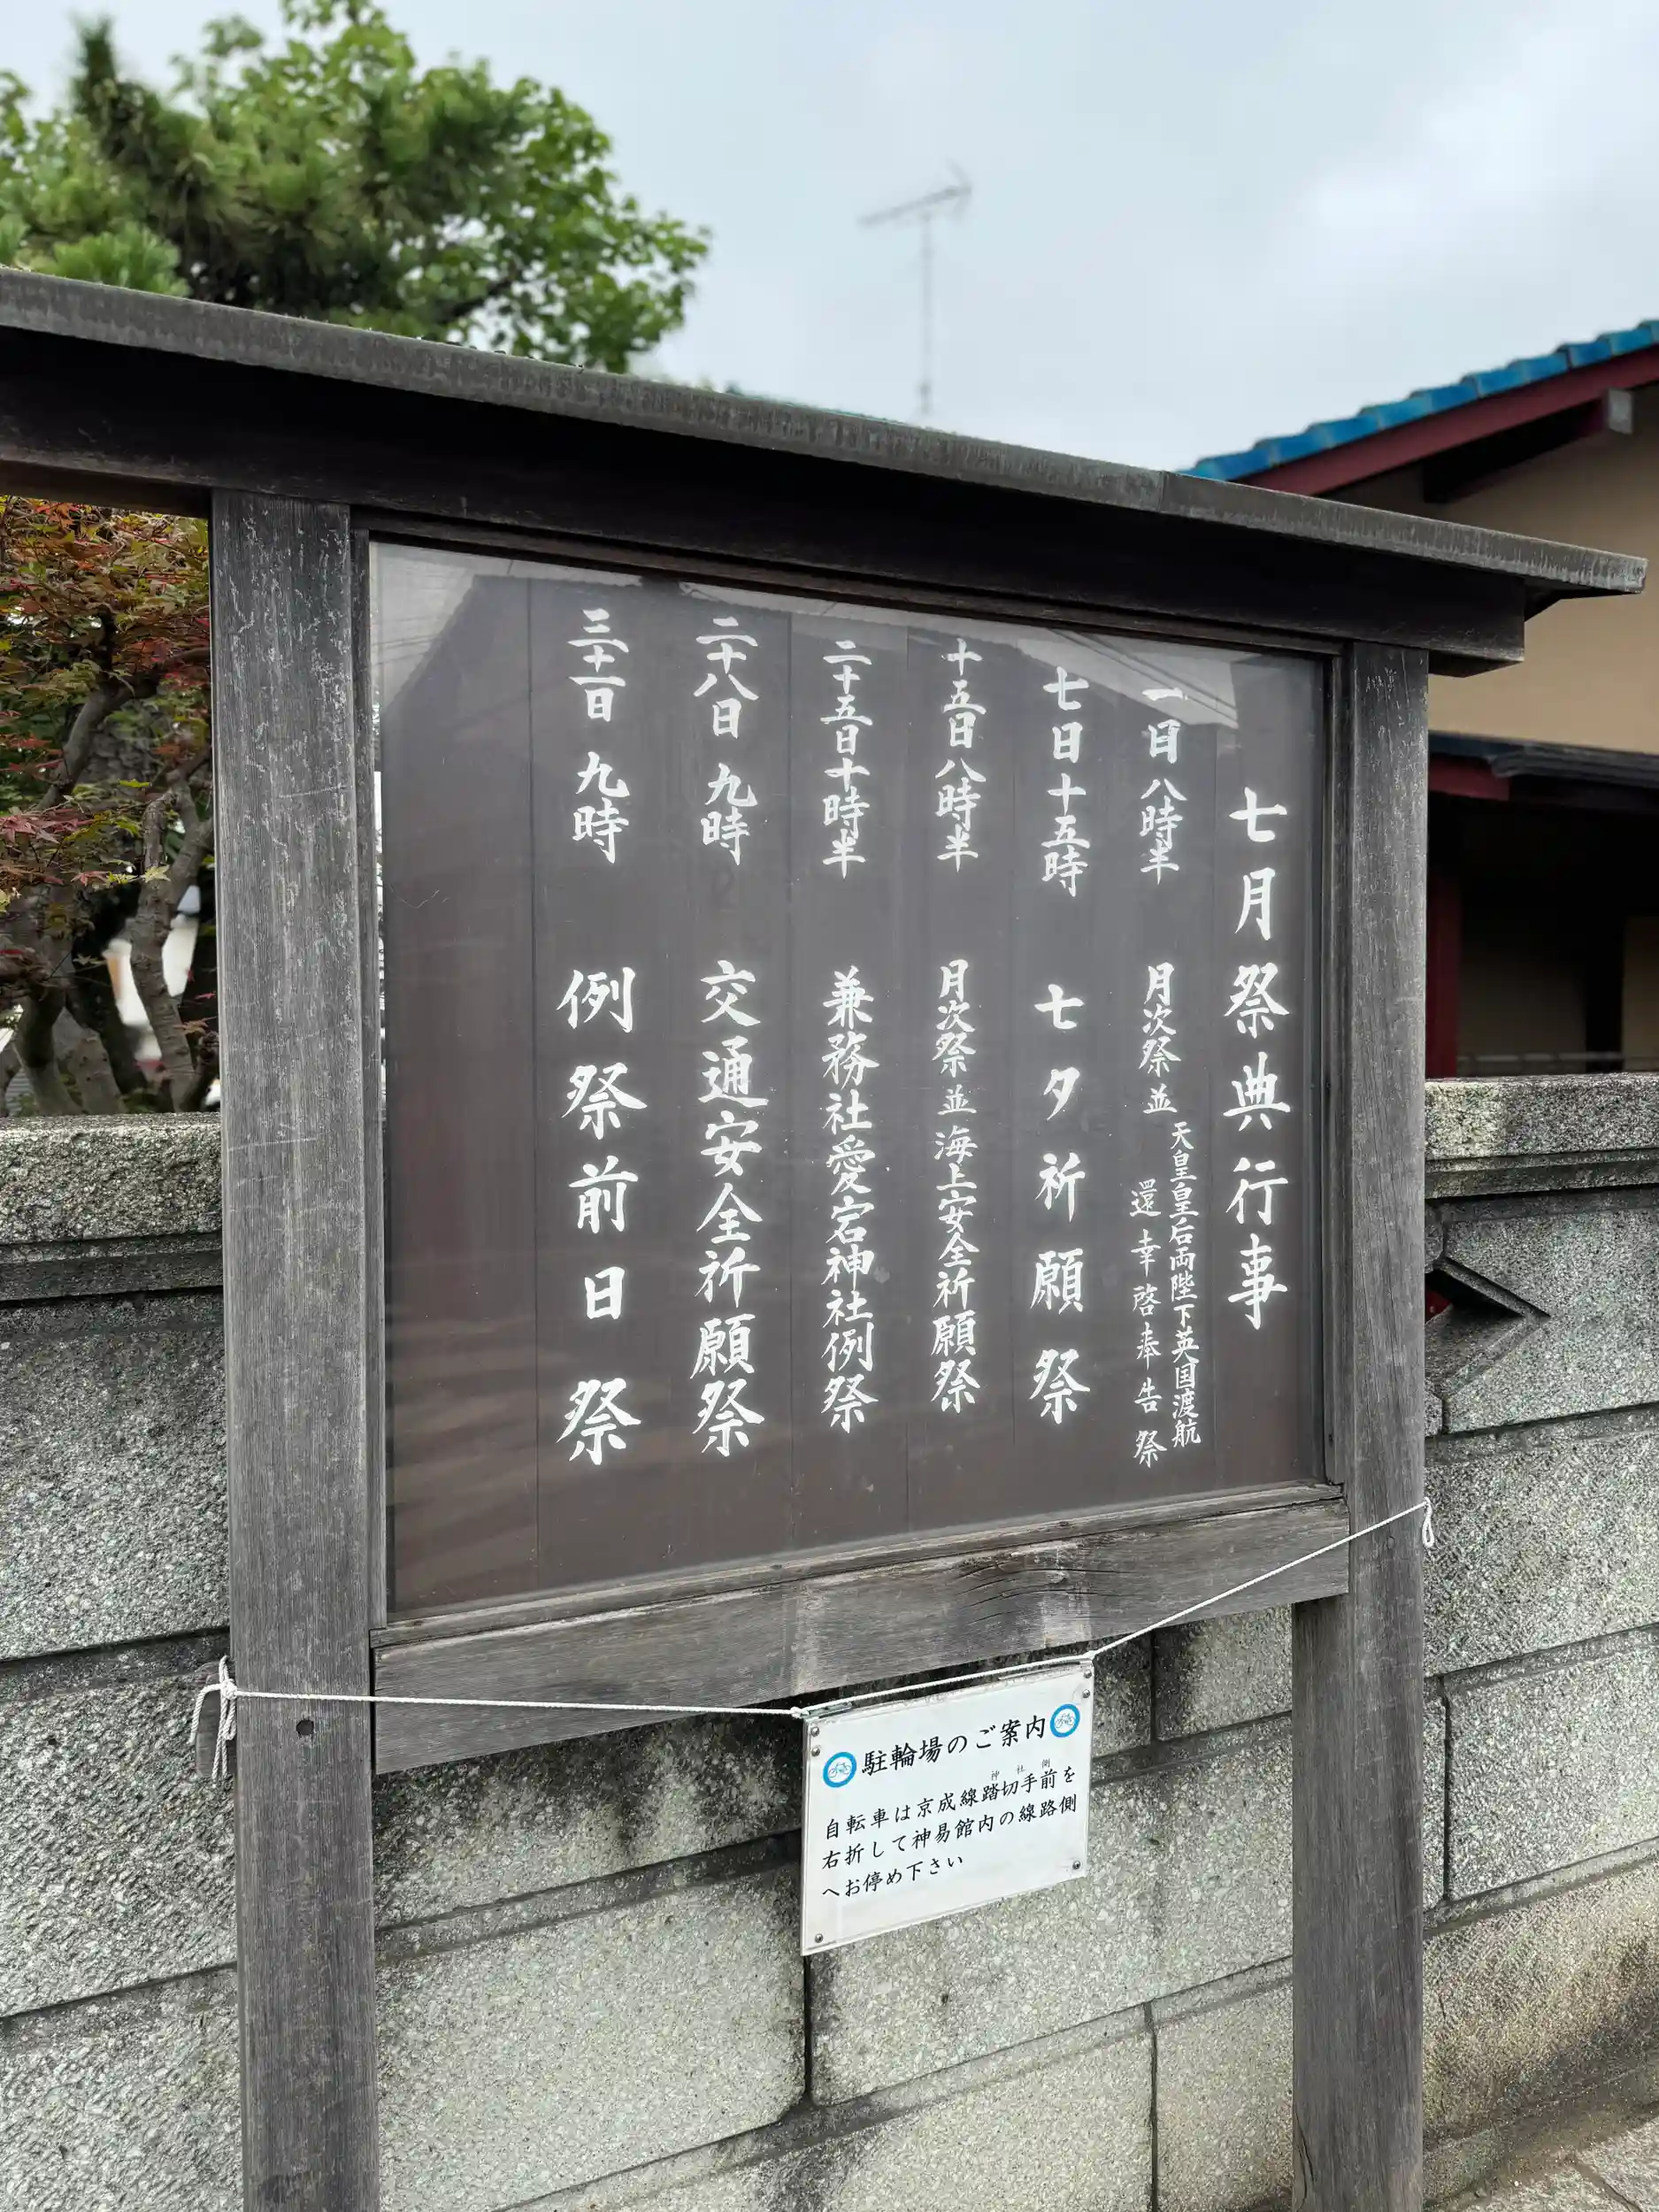 七月祭典行事
一日 八時半 月次祭 並 天皇皇后両陛下英国渡航
還幸啓奉告祭
七日 十五時 七夕祈願祭
十五日 八時半 月次祭 並 海上安全祈願祭
二十五日 十時半 兼務社愛宕神社例祭
二十八日 九時 交通安全祈願祭
三十一日 九時 例祭前日祭
駐輪場のご案内
神社側
自転車は京成線踏切手前を
右折して神易館内の線路側
へお停め下さい